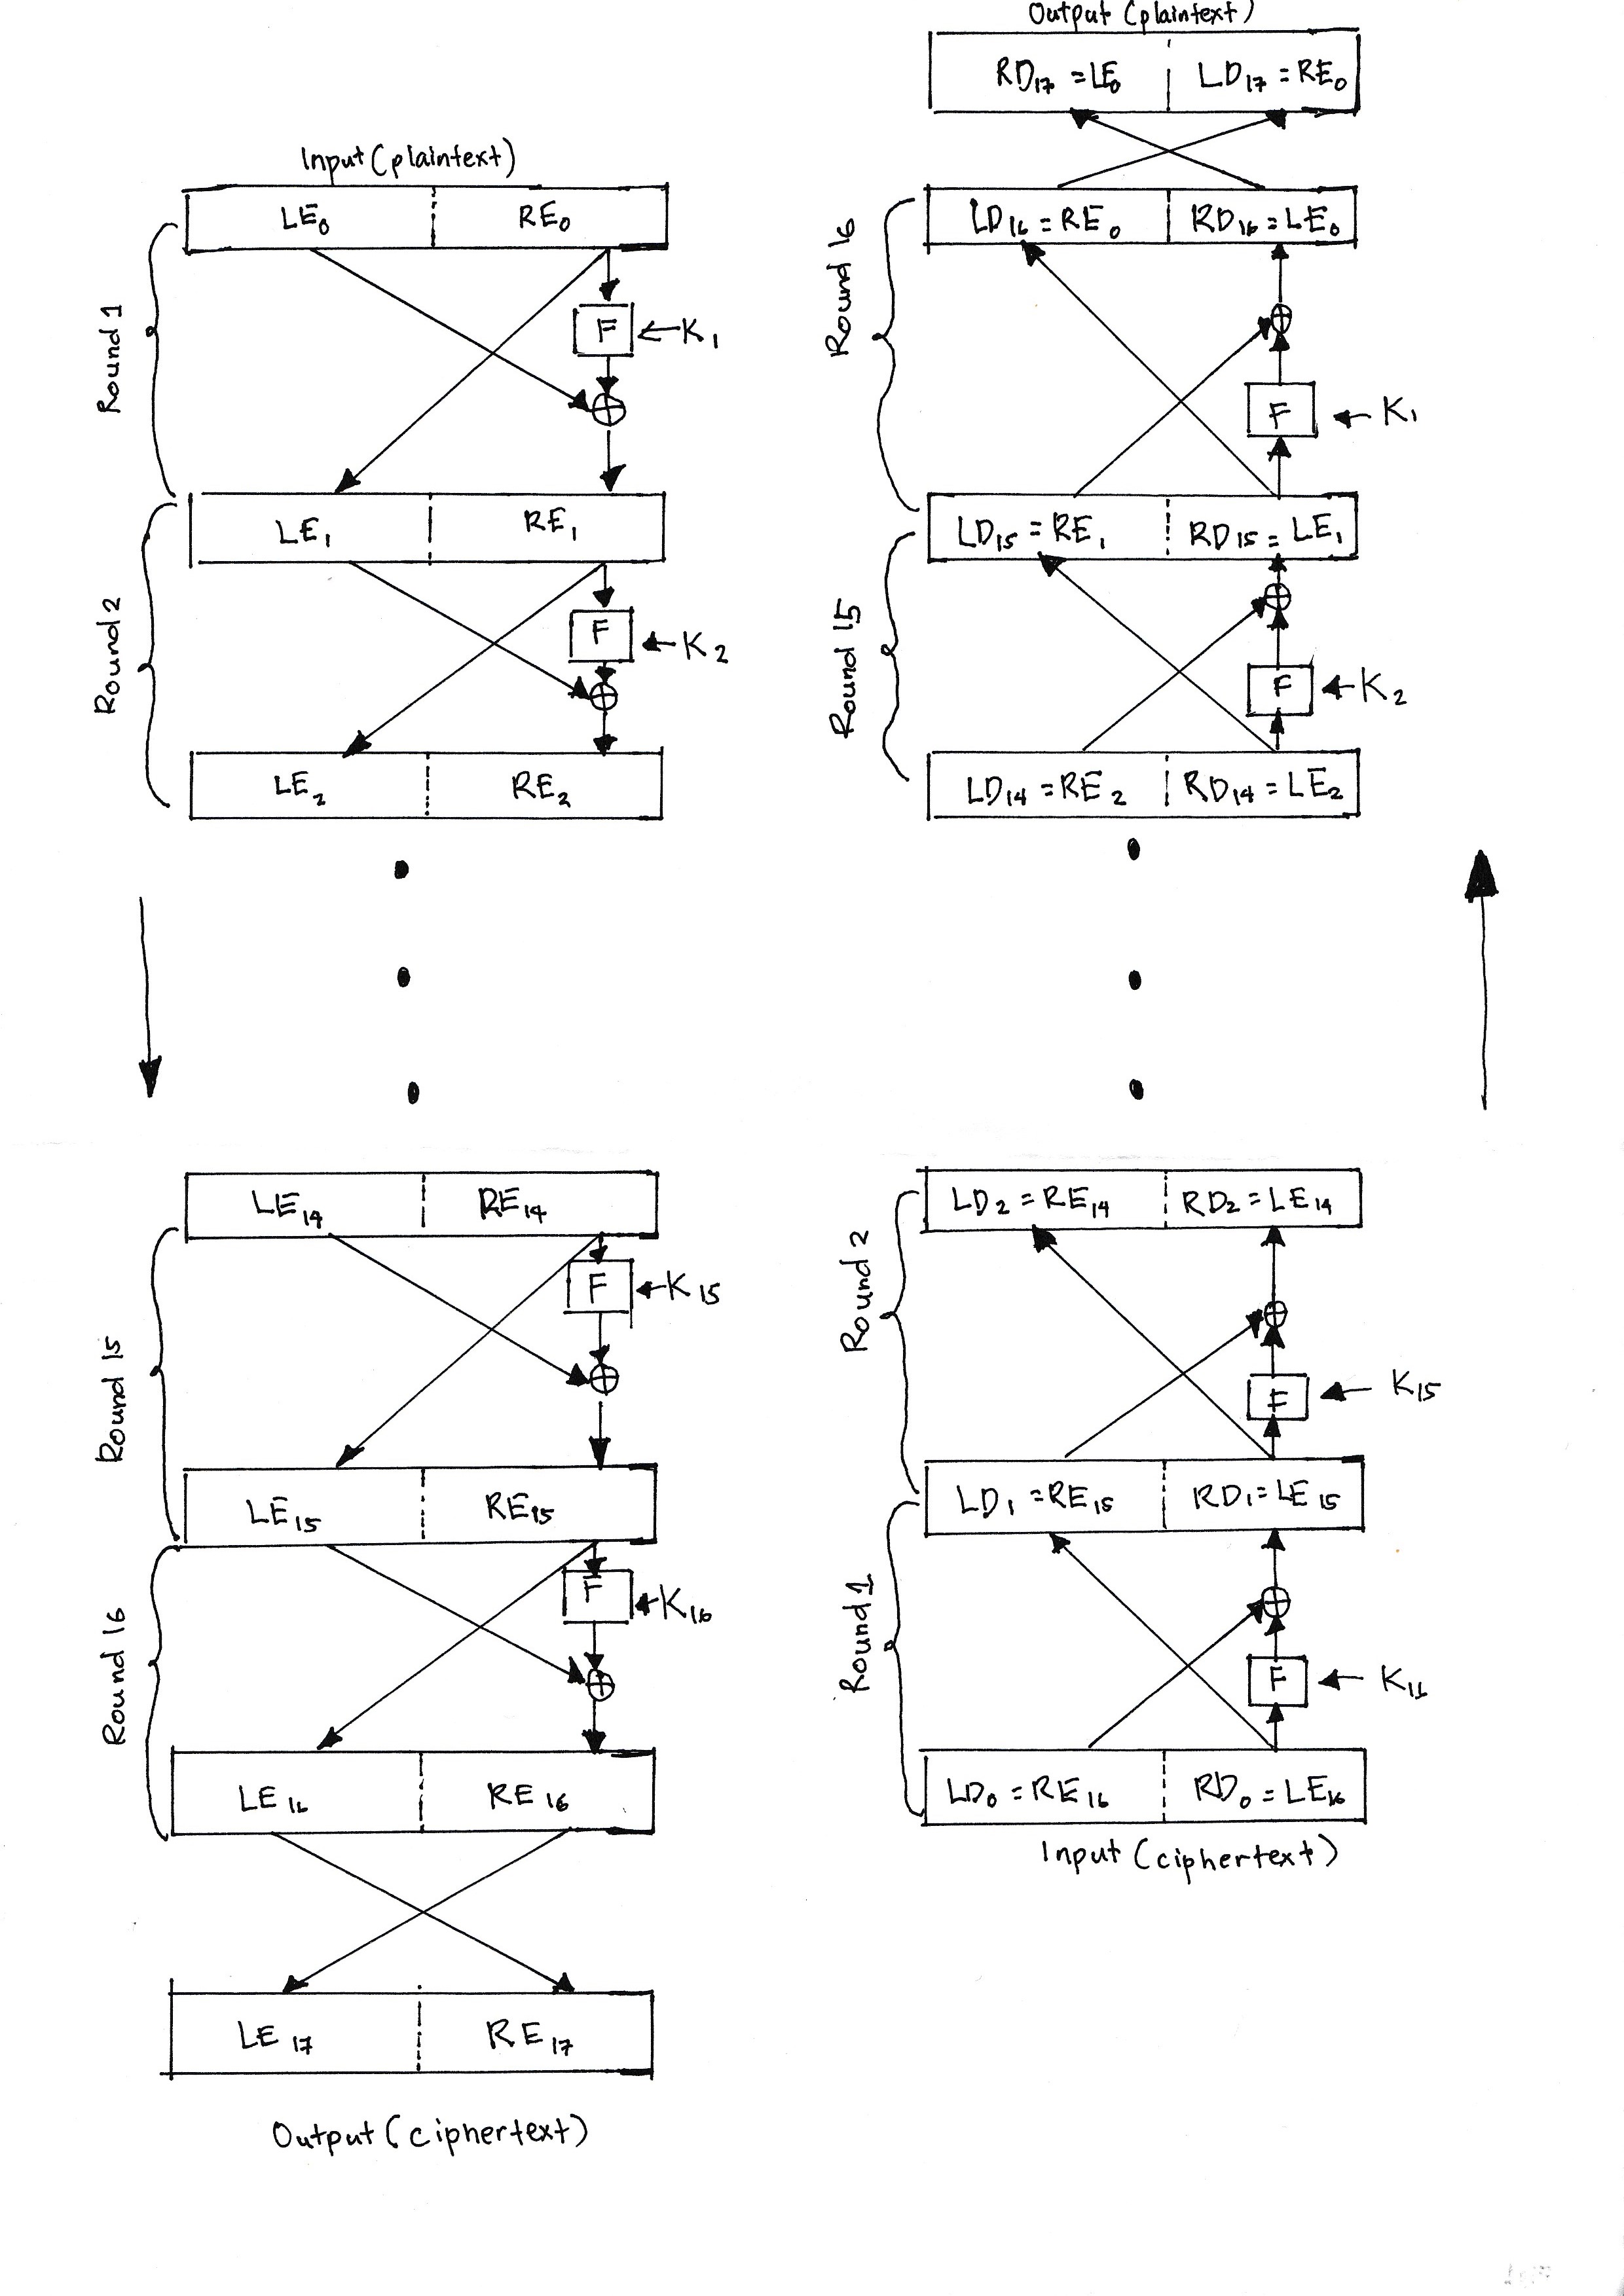 Input (plaintext)
LE0 RE0
Round 1
F K1
LE1 RE1
Round 2
F K2
LE2 RE2
LE14 RE14
Round 15
F K15
LE15 RE15
Round 16
F K16
LE16 RE16
LE17 RE17
Output (ciphertext)
Output (plaintext)
RD17 = LE0 LD17 = RE0
LD16 = RE0 RD16 = LE0
Round 16
F K1
LD15 = RE1 RD15 = LE1
Round 15
F K2
LD14 = RE2 RD14 = LE2
LD2 = RE14 RD2 = LE14
Round 2
F K15
LD1 = RE15 RD1 = LE15
Round 1
F K16
LD0 = RE16 RD0 = LE16
Input (ciphertext)